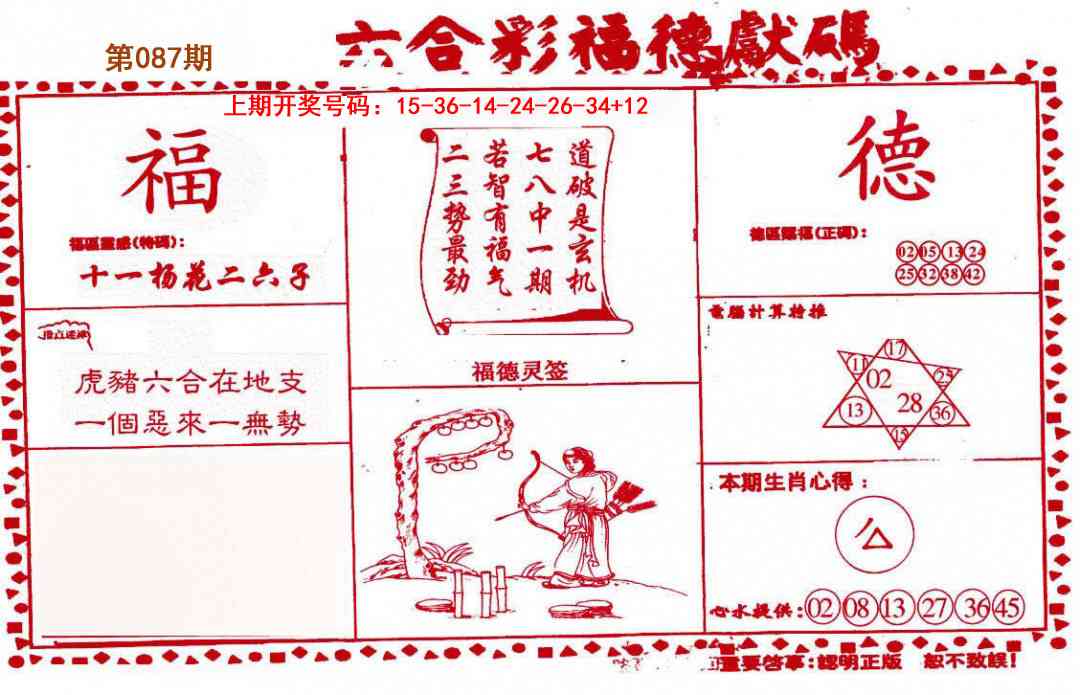 第087期
六合彩福德獻碼
上期开奖号码：15-36-14-24-26-34+12
福
福區靈感(特碼)：
十一杨花二六子
虎豬六合在地支
一個惡來一無勢
道破是玄机
七八中一期
若智有福气
二三势最劲
福德灵签
德
德區賜福(正碼)：
02 05 13 24
25 32 38 42
電腦計算特推
17
11 02 25
13 28 36
15
本期生肖心得：
心水提供：02 08 13 27 36 45
重要啓事：認明正版 恕不致誤！